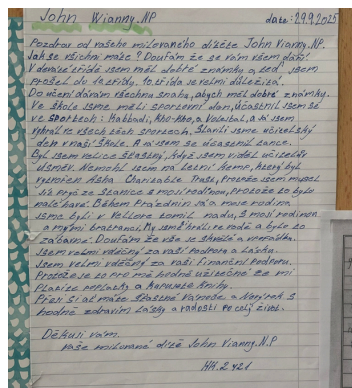 John Wianny.NP date: 29.9.2025
Pozdrav od vašeho milovaného dítěte John Vianny.NP.
Jak se všichni máte? Doufám že se vám všem daří.
V deváté třídě jsem měl dobré známky a teď jsem
přešel do 10 třídy. 10 třída je velmi důležitá.
Do učení dávám všechnu snahu, abych měl dobré známky.
Ve škole jsme měli sportovní den, účastnil jsem se
ve sportech: Kabbadi, Kho-Kho, a Volejbal, a já jsem
vyhrál ve všech těch sportech. Slavili jsme učitelský
den v naší škole. A já jsem se účastnil tance.
Byl jsem velice šťastný, když jsem viděl učitelův
úsměv. Nemohl jsem na letní kemp, který byl
Asha Charitable Trust, protože jsem musel
jít pryč ze stanice s mojí rodinou, protože to bylo
naléhavé. Během prázdnin já a moje rodina
jsme byli v Vellore tamil nadu, s mojí rodinou
a mými bratranci. My jsme hráli ve vodě a bylo to
zábavné. Doufám že vše je skvělé a v pořádku.
Jsem velmi vděčný za vaši podporu a lásku.
Jsem velmi vděčný za vaši finanční podporu.
Protože je to pro mě hodně užitečné že mi
platíte poplatky a kupujete knihy.
Přeji si ať máte šťastné Vánoce a Nový rok. S
hodně zdravím lásky a radosti po celý život.
Děkuji vám.
Vaše milované dítě John Vianny.N.P
HK.2421